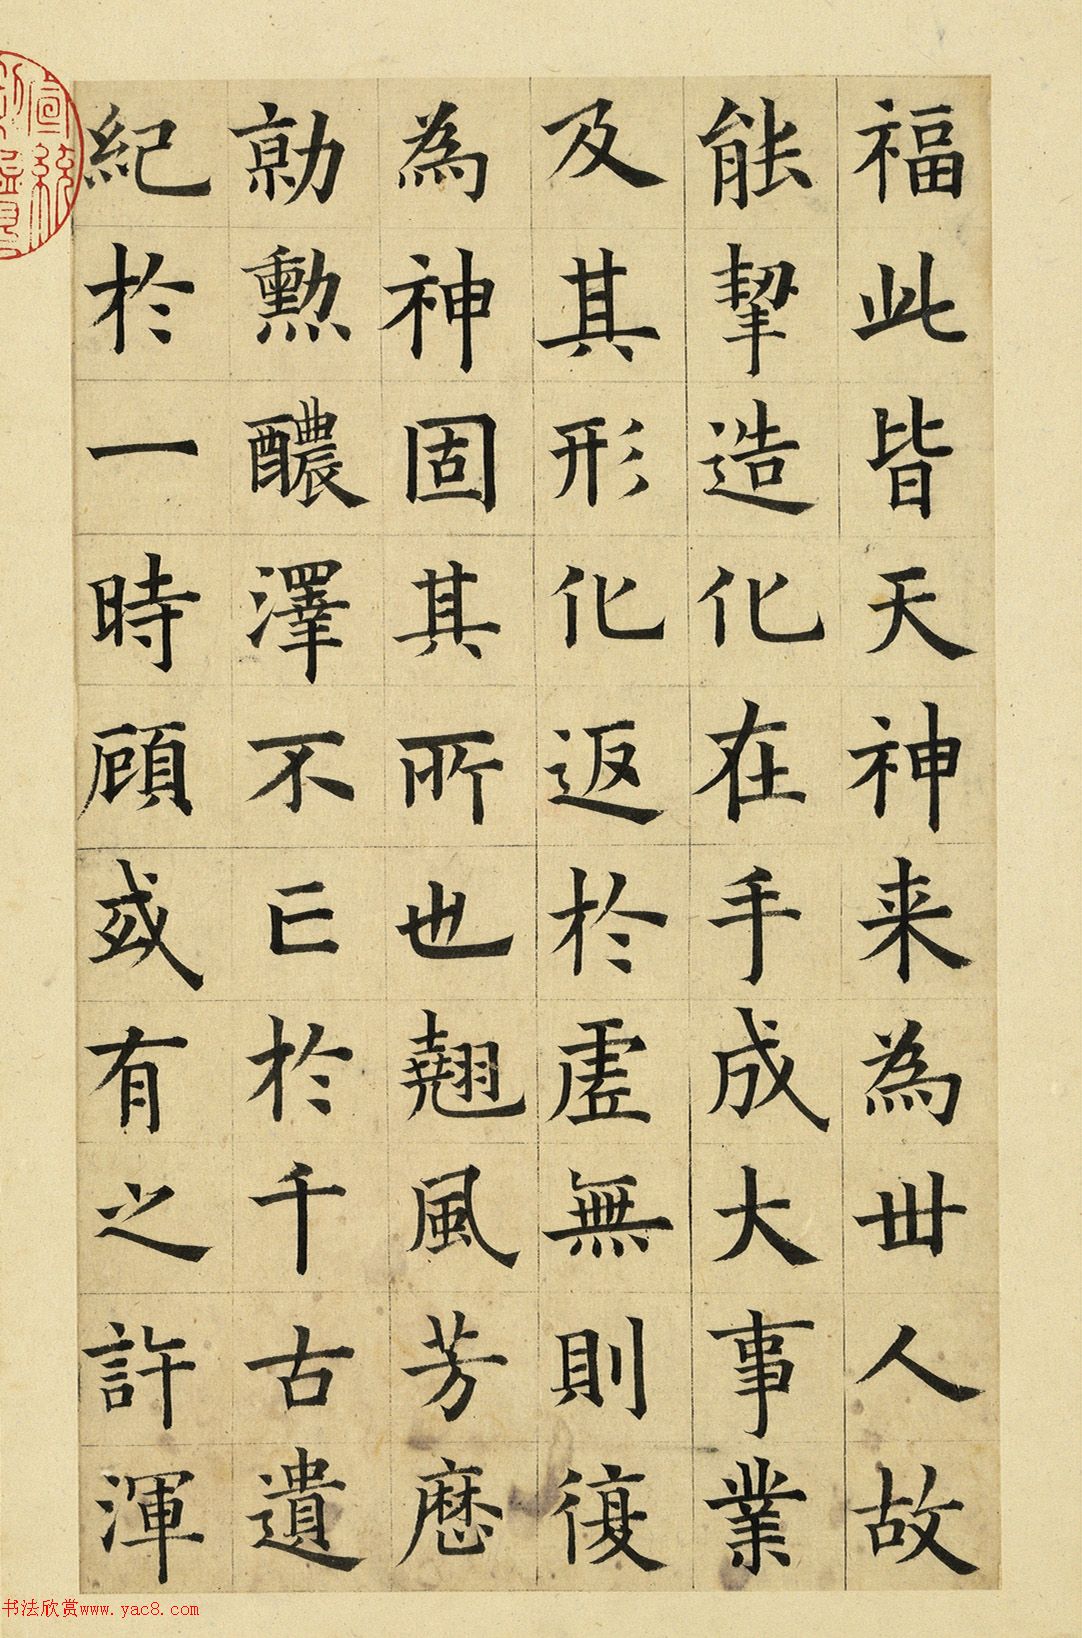 福此皆天神来為丗人故
能挈造化在手成大事業
及其形化返於虛無則復
為神固其所也翹風芳愿
勍勲醲澤不亡於千古遺
紀於一時顧或有之許渾
书法欣赏www.yac8.com